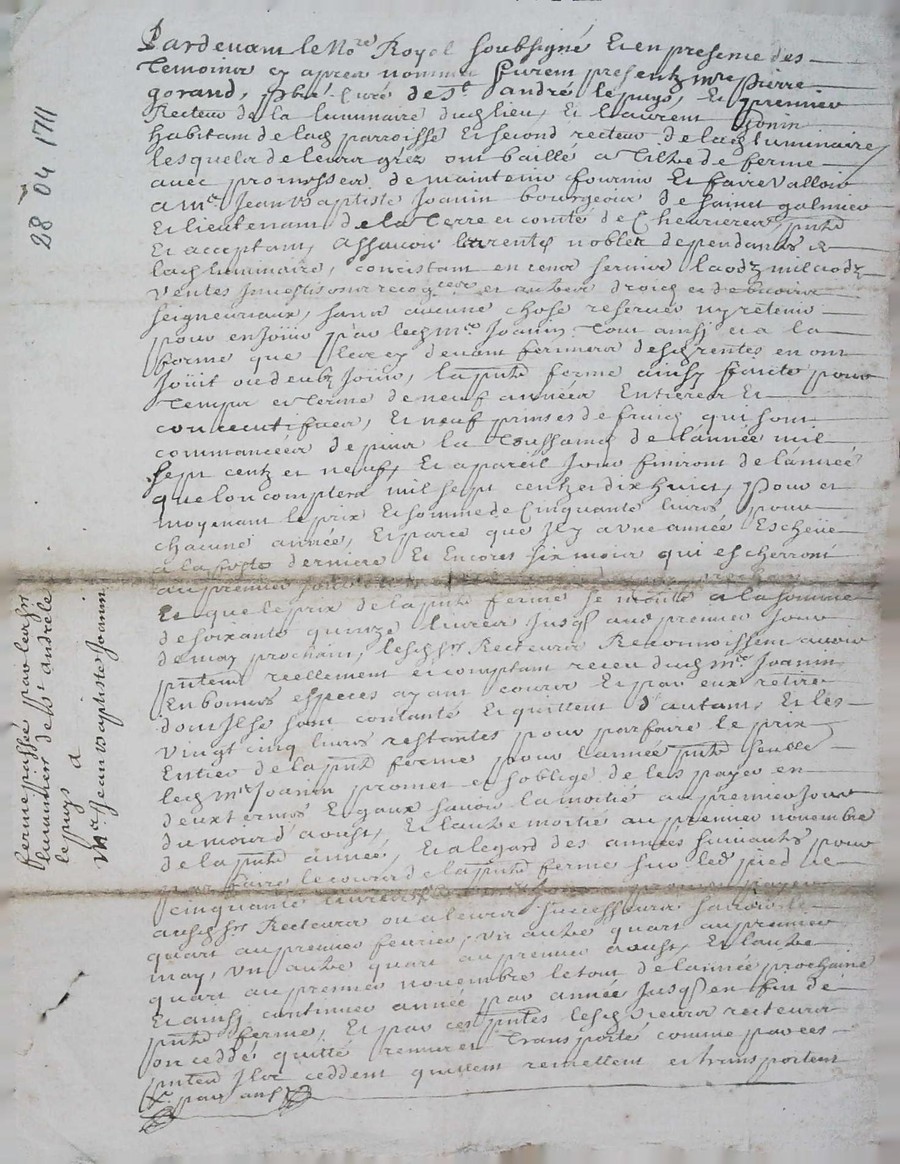 Pardevant le No.re Royal soubsigné et en presence des
temoins cy apres nommes furent presentz mre pierre
gorand, pbre curé de st andré le puys, et premier
Recteur de la luminaire dud lieu, et laurent
habitant de lad parroisse et second recteur de lad luminaire
lesquels de leurs grez ont baillé a tiltre de ferme
avec promesses de maintenir fournir et faire valloir
a mre Jean baptiste Joanin bourgeois de sainct galmier
et lieutenant de la terre et comté de Chevrieres, pnt
et acceptant, assavoir la rente noble dependante de
lad luminaire, concistant en cens servis laodz milaodz
ventes investisons et autres droicts et debvoirs
seigneuriaux, sans aucune chose reserver ny retenir
pour en joüir par led mre Joanin tout ainsy et a la
forme que les cy devant fermiers desd rentes en ont
joüit ou deub joüir, la pnte ferme ainsy faicte pour
temps et terme de neuf années entieres et
concecutifves, et neuf prinses de fruicts qui sont
commancées depuis la Toussainct de l'année mil
sept centz et neuf, et a pareil jour finiront de l'année
que lon comptera mil sept centz et dix huict, pour et
moyenant le prix et somme de cinquante livres, pour
chacune année, et parce que il y a une année escheüe
a la feste derniere et encores six mois qui escherront
au premier jour de
et que le prix de la pnte ferme se monte a la somme
de soixante quinze livres jusq aud premier jour
de may prochain, lesd srs Recteurs Reconnoissent avoir
pntem reellement et comptant receu dud mre Joanin
en bonnes especes ayant cours et par eux retiré
dont ilz se sont contantés et quittent d'autant, et les
vingt cinq livres restantes pour parfaire le prix
entier de la pnte ferme pour l'année pnte seulle
led mre Joanin promet et s'oblige de les payer en
deux termes egaux savoir la moitié au premier jour
du mois d'aoust, et l'autre moitié au premier novembre
de la pnte année, et a legard des années suivantes pour
parfaire le cours de la pnte ferme sur led pied de
cinquante livres
ausd srs Recteurs ou a leurs successeurs savoir le
quart au premier febvrier, un autre quart au premier
may, un autre quart au premier aoust, et l'autre
quart au premier novembre le tout de l'année prochaine
et ainsy continuer année par année jusq en fin de
pnte ferme, et par ces pntes lesd sieurs recteurs
on ceddé quitté remis et transporté comme par ces
pntes ilz ceddent quittent remettent et transportent
par ans
28 04 1711
ferme passée par les srs
luminiers de st andré le
le puys
a
Mre Jean baptiste Joannin